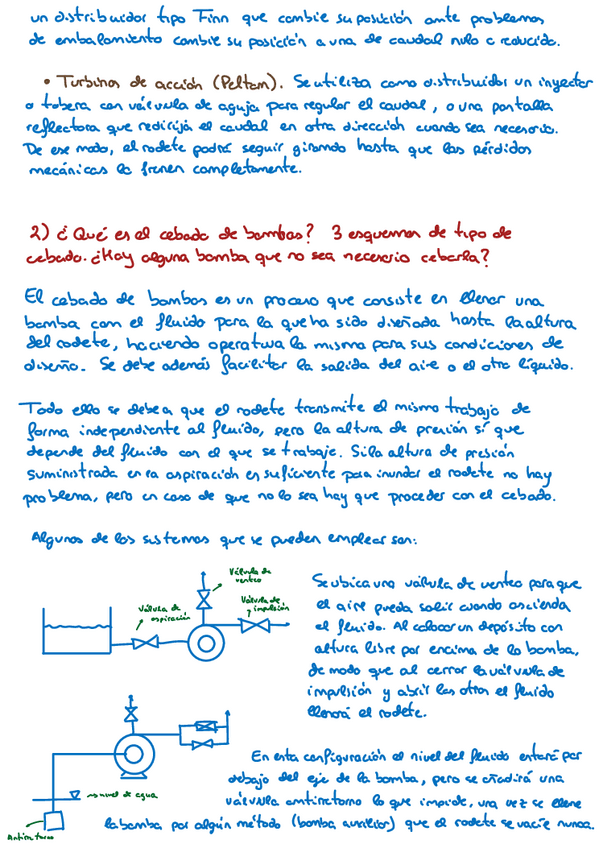 un distribuidor tipo Finn que cambie su posición ante problemas
de embalamiento cambie su posición a una de caudal nulo o reducido.
• Turbinas de acción (Peltom). Se utiliza como distribuidor un inyector
o tobera con válvula de aguja para regular el caudal, o una pantalla
reflectora que redirija el caudal en otra dirección cuando sea necesario.
De ese modo, el rodete podrá seguir girando hasta que las pérdidas
mecánicas lo frenen completamente.
2) ¿Qué es el cebado de bombas? 3 esquemas de tipo de
cebado. ¿Hay alguna bomba que no sea necesario cebarla?
El cebado de bombas es un proceso que consiste en llenar una
bomba con el fluido para la que ha sido diseñada hasta la altura
del rodete, haciendo operativa la misma para sus condiciones de
diseño. Se debe además facilitar la salida del aire o el otro líquido.
Todo ello se debe a que el rodete transmite el mismo trabajo de
forma independiente al fluido, pero la altura de presión sí que
depende del fluido con el que se trabaje. Si la altura de presión
suministrada en la aspiración es suficiente para inundar el rodete no hay
problema, pero en caso de que no lo sea hay que proceder con el cebado.
Algunos de los sistemas que se pueden emplear son:
Válvula de
venteo
Válvula de
aspiración
Válvula de
impulsión
Se ubica una válvula de venteo para que
el aire pueda salir cuando ascienda
el fluido. Al colocar un depósito con
altura libre por encima de la bomba,
de modo que al cerrar la válvula de
impulsión y abrir las otras el fluido
llenará el rodete.
nivel de agua
Antirretorno
En esta configuración el nivel del fluido estará por
debajo del eje de la bomba, pero se añadirá una
válvula antirretorno lo que impide, una vez se llene
la bomba por algún método (bomba auxiliar) que el rodete se vacíe nunca.